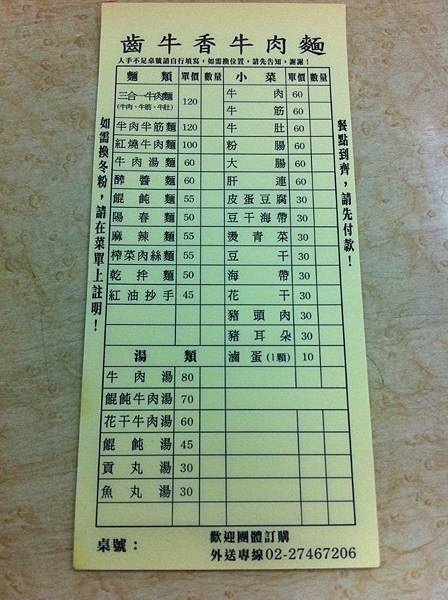 齒牛香牛肉麵
人手不足桌號請自行填寫，如需換位置，請先告知，謝謝！
麵類 單價 數量 小菜 單價 數量
三合一牛肉麵 120 牛肉 60
(牛肉、牛筋、牛肚) 牛筋 60
牛肉半筋麵 120 牛肚 60
紅燒牛肉麵 100 粉腸 60
牛肉湯麵 60 大腸 60
醡醬麵 60 肝連 60
餛飩麵 55 皮蛋豆腐 30
陽春麵 50 豆干海帶 30
麻辣麵 55 燙青菜 30
榨菜肉絲麵 55 豆干 30
乾拌麵 50 海帶 30
紅油抄手 45 花干 30
豬頭肉 30
豬耳朵 30
湯類 滷蛋(1顆) 10
牛肉湯 80
餛飩牛肉湯 70
花干牛肉湯 60
餛飩湯 45
貢丸湯 30
魚丸湯 30
如需換冬粉，請在菜單上註明！
餐點到齊，請先付款！
桌號：
歡迎團體訂購
外送專線02-27467206